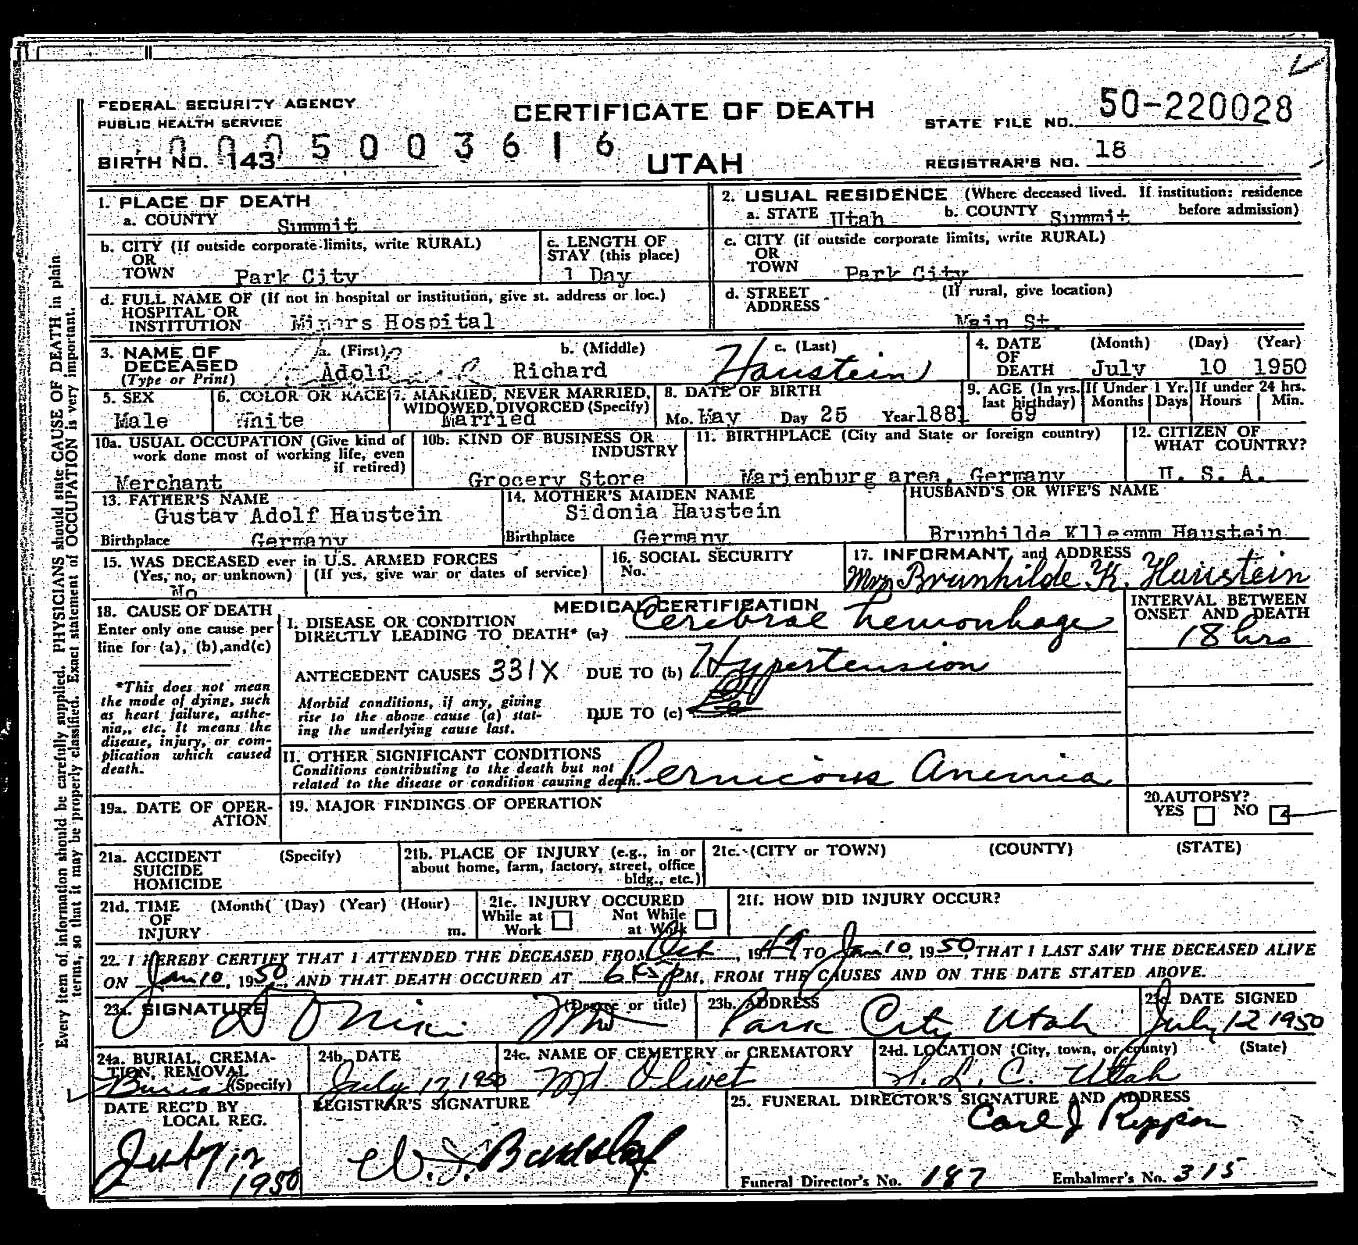 FEDERAL SECURITY AGENCY
PUBLIC HEALTH SERVICE
CERTIFICATE OF DEATH
STATE FILE NO. 50-220028
BIRTH NO. 143 0005003616
UTAH
REGISTRAR'S NO. 18
1. PLACE OF DEATH
a. COUNTY Summit
2. USUAL RESIDENCE (Where deceased lived. If institution: residence before admission)
a. STATE Utah b. COUNTY Summit
b. CITY (If outside corporate limits, write RURAL)
OR
TOWN Park City
c. LENGTH OF
STAY (this place)
1 Day
c. CITY (if outside corporate limits, write RURAL)
OR
TOWN Park City
d. FULL NAME OF (If not in hospital or institution, give st. address or loc.)
HOSPITAL OR
INSTITUTION Miners Hospital
d. STREET (If rural, give location)
ADDRESS Main St.
3. NAME OF DECEASED
(Type or Print)
a. (First) b. (Middle) c. (Last)
Adolf Richard Haustein
4. DATE OF DEATH (Month) (Day) (Year)
July 10 1950
5. SEX
Male
6. COLOR OR RACE
White
7. MARRIED, NEVER MARRIED,
WIDOWED, DIVORCED (Specify)
Married
8. DATE OF BIRTH
Mo. May Day 25 Year 1881
9. AGE (In yrs. last birthday)
69
If Under 1 Yr. Months Days
If under 24 hrs. Hours Min.
10a. USUAL OCCUPATION (Give kind of
work done most of working life, even
if retired)
Merchant
10b. KIND OF BUSINESS OR
INDUSTRY
Grocery Store
11. BIRTHPLACE (City and State or foreign country)
Marienburg area, Germany
12. CITIZEN OF
WHAT COUNTRY?
U. S. A.
13. FATHER'S NAME
Gustav Adolf Haustein
Birthplace Germany
14. MOTHER'S MAIDEN NAME
Sidonia Haustein
Birthplace Germany
HUSBAND'S OR WIFE'S NAME
Brunhilde Klleomm Haustein
15. WAS DECEASED ever in U.S. ARMED FORCES
(Yes, no, or unknown) (If yes, give war or dates of service)
No
16. SOCIAL SECURITY
No.
17. INFORMANT and ADDRESS
Mrs Brunhilde K. Haustein
18. CAUSE OF DEATH
Enter only one cause per
line for (a), (b), and (c)
*This does not mean
the mode of dying, such
as heart failure, asthe-
nia, etc. It means the
disease, injury, or com-
plication which caused
death.
MEDICAL CERTIFICATION
I. DISEASE OR CONDITION
DIRECTLY LEADING TO DEATH* (a) Cerebral hemorrhage
ANTECEDENT CAUSES 331X DUE TO (b) Hypertension
Morbid conditions, if any, giving
rise to the above cause (a) stat-
ing the underlying cause last.
DUE TO (c)
INTERVAL BETWEEN
ONSET AND DEATH
18 hrs
II. OTHER SIGNIFICANT CONDITIONS
Conditions contributing to the death but not
related to the disease or condition causing death.
Pernicious Anemia
19a. DATE OF OPER-
ATION
19. MAJOR FINDINGS OF OPERATION
20. AUTOPSY?
YES NO
21a. ACCIDENT (Specify)
SUICIDE
HOMICIDE
21b. PLACE OF INJURY (e.g., in or
about home, farm, factory, street, office
bldg., etc.)
21c. (CITY or TOWN) (COUNTY) (STATE)
21d. TIME (Month( (Day) (Year) (Hour)
OF
INJURY m.
21e. INJURY OCCURED
While at Work Not While at Work
21f. HOW DID INJURY OCCUR?
22. I HEREBY CERTIFY THAT I ATTENDED THE DECEASED FROM Oct, 1949 TO Jan 10, 1950, THAT I LAST SAW THE DECEASED ALIVE
ON Jan 10, 1950, AND THAT DEATH OCCURED AT M, FROM THE CAUSES AND ON THE DATE STATED ABOVE.
23a. SIGNATURE (Degree or title)
23b. ADDRESS
Park City Utah
23c. DATE SIGNED
July 12 1950
24a. BURIAL, CREMA-
TION, REMOVAL
(Specify)
Burial
24b. DATE
July 17, 1950
24c. NAME OF CEMETERY or CREMATORY
Mt Olivet
24d. LOCATION (City, town, or county) (State)
S. L. C. Utah
DATE REC'D BY
LOCAL REG.
July 12
1950
REGISTRAR'S SIGNATURE
25. FUNERAL DIRECTOR'S SIGNATURE AND ADDRESS
Carl J
Funeral Director's No. 187 Embalmer's No. 315
Every item of information should be carefully supplied. PHYSICIANS should state CAUSE OF DEATH in plain
terms, so that it may be properly classified. Exact statement of OCCUPATION is very important.